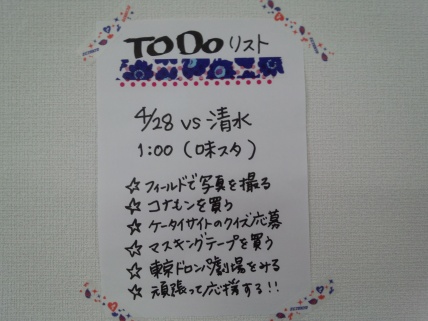 TODOリスト
4/28 vs 清水
1:00 (味スタ)
☆フィールドで写真を撮る
☆コナもンを買う
☆ケータイサイトのクイズ応募
☆マスキングテープを買う
☆東京ドロンパ劇場をみる
☆頑張って応援する!!